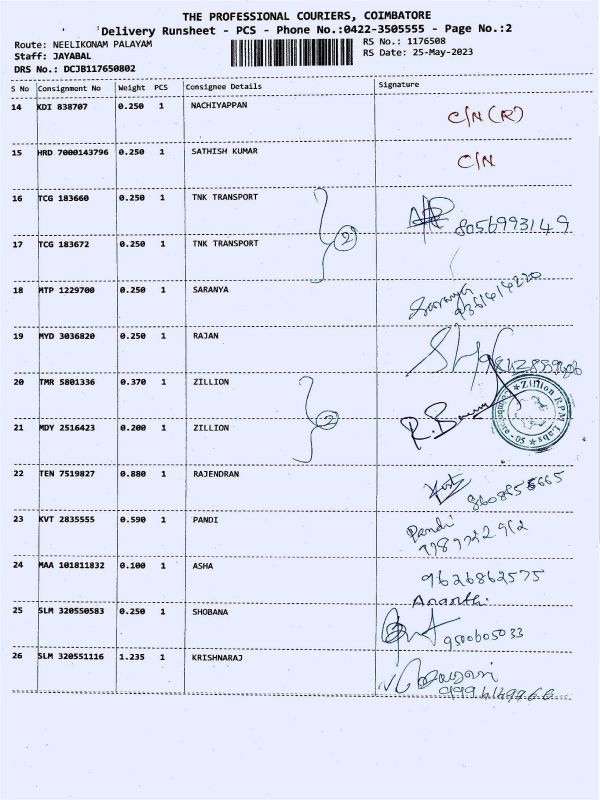 THE PROFESSIONAL COURIERS, COIMBATORE
Delivery Runsheet - PCS - Phone No.:0422-3505555 - Page No.:2
Route: NEELIKONAM PALAYAM RS No.: 1176508
Staff: JAYABAL RS Date: 25-May-2023
DRS No.: DCJB117650802
S No Consignment No Weight PCS Consignee Details Signature
14 KDI 838707 0.250 1 NACHIYAPPAN C/N (R)
15 HRD 7000143796 0.250 1 SATHISH KUMAR C/N
16 TCG 183660 0.250 1 TNK TRANSPORT 8056993149
2
17 TCG 183672 0.250 1 TNK TRANSPORT
18 MTP 1229700 0.250 1 SARANYA Saranya
19 MYD 3036820 0.250 1 RAJAN
20 TMR 5801336 0.370 1 ZILLION
2
21 MDY 2516423 0.200 1 ZILLION Zillion RPM Labs
22 TEN 7519827 0.880 1 RAJENDRAN
23 KVT 2835555 0.590 1 PANDI Pandi
24 MAA 101811832 0.100 1 ASHA 9626862575
Ananthi
25 SLM 320550583 0.250 1 SHOBANA 9500605033
26 SLM 320551116 1.235 1 KRISHNARAJ